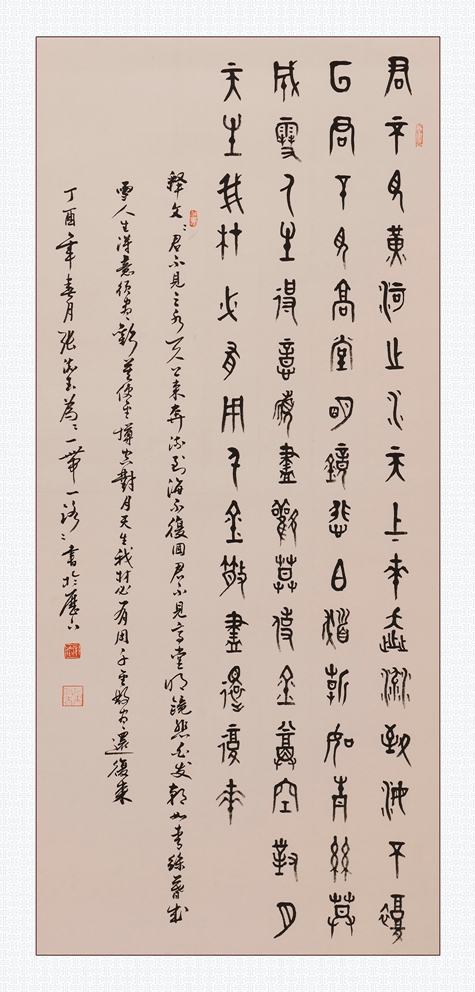 君不見黃河之水天上來奔流到海不復
回君不見高堂明鏡悲白髮朝如青絲暮
成雪人生得意須盡歡莫使金尊空對月
天生我材必有用千金散盡還復來
释文：君不見之水天上来奔流到海不復回君不見高堂明鏡悲白发朝如青絲暮成
雪人生得意須尽歡莫使金樽空對月天生我材必有用千金散尽還復来
丁酉年春月张為“一帶一路”書於歷下